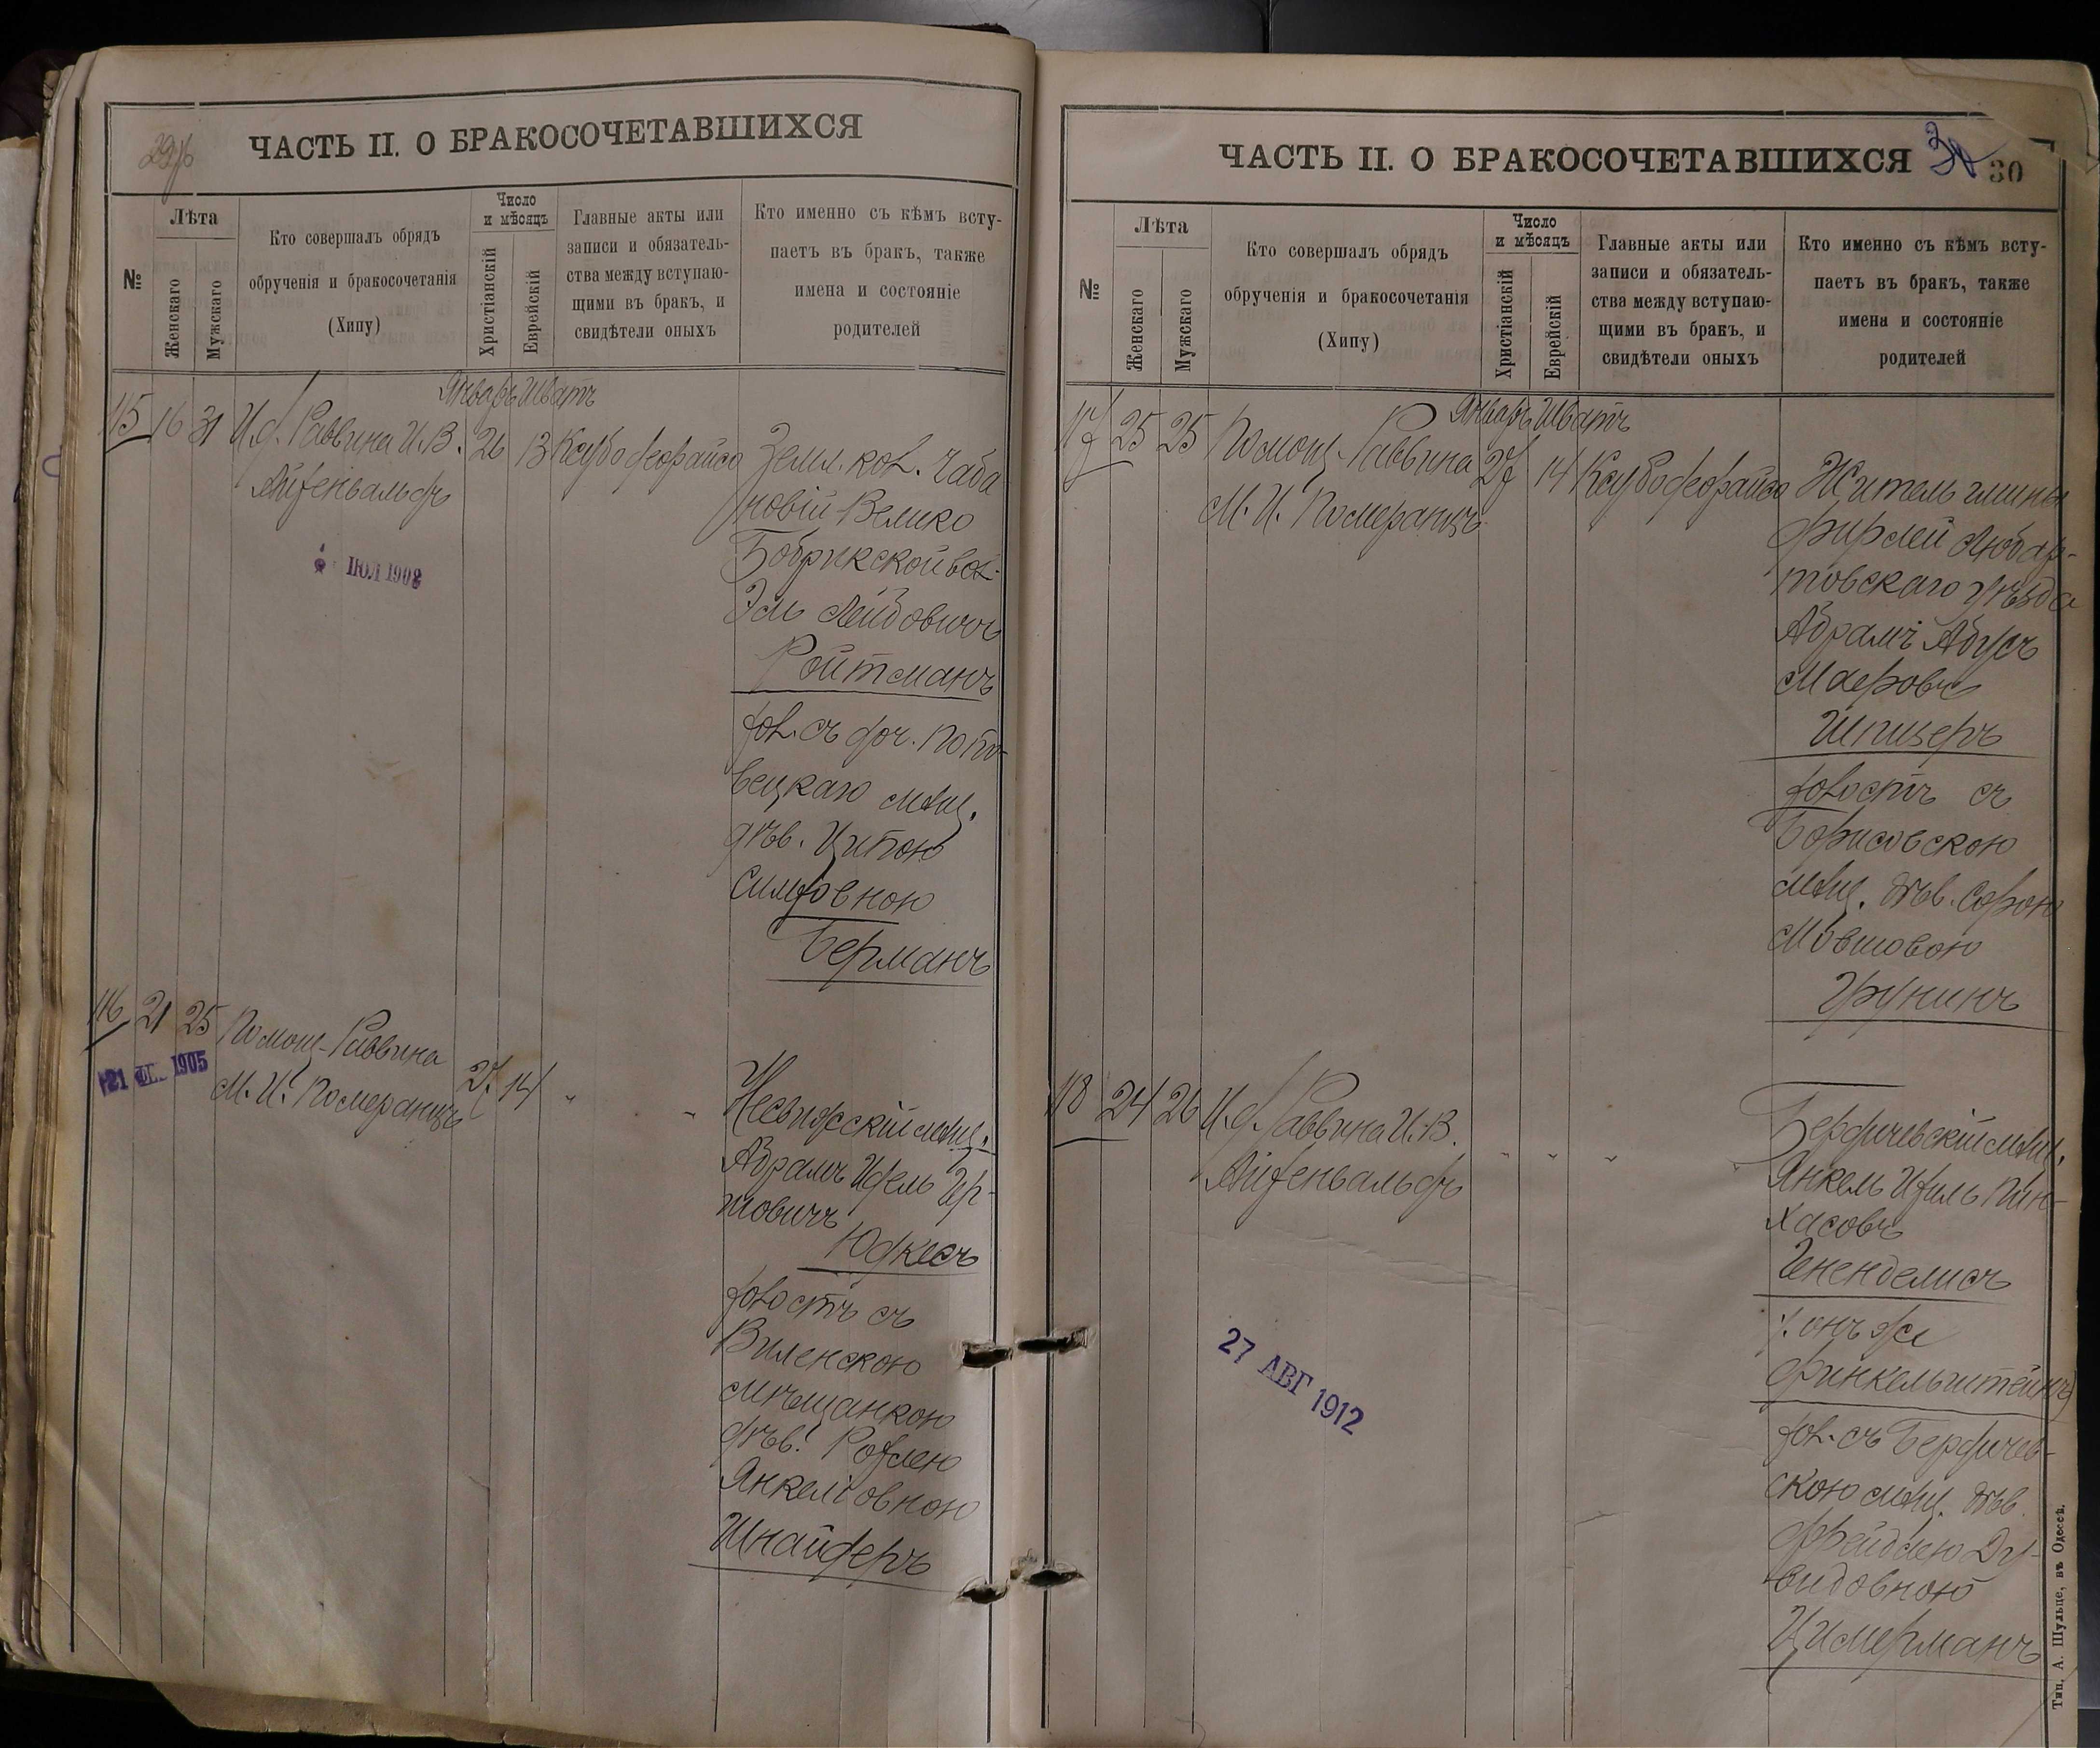 29об
ЧАСТЬ II. О БРАКОСОЧЕТАВШИХСЯ
№
Лѣта
Женскаго
Мужскаго
Кто совершалъ обрядъ
обрученія и бракосочетанія
(Хипу)
Число
и мѣсяцъ
Христіанскій
Еврейскій
Главные акты или
записи и обязатель-
ства между вступаю-
щими въ бракъ, и
свидѣтели оныхъ
Кто именно съ кѣмъ всту-
паетъ въ бракъ, также
имена и состояніе
родителей
Январь Шватъ
115 16 31 И.д. Раввина И.В. 26 13
Айзенвальдъ
ІЮЛ 1902
Земл. кол.
Велико
Бобрикской вол.
Эль Лейбовичъ
Ройтманъ
хол. съ доч.
мѣщ.
дѣв. Ципою
Симховною
Берманъ
116 21 25 Помощ. Раввина
М. И. Померанцъ 27 14 " "
21 1905
Несвижскій мѣщ.
Абрамъ Ицель Гер-
шовичъ
Юдкесъ
холостъ съ
Виленскою
мѣщанкою
дѣв. Рохлею
Янкелiовною
Шнайдеръ
ЧАСТЬ II. О БРАКОСОЧЕТАВШИХСЯ
30
30
№
Лѣта
Женскаго
Мужскаго
Кто совершалъ обрядъ
обрученія и бракосочетанія
(Хипу)
Число
и мѣсяцъ
Христіанскій
Еврейскій
Главные акты или
записи и обязатель-
ства между вступаю-
щими въ бракъ, и
свидѣтели оныхъ
Кто именно съ кѣмъ всту-
паетъ въ бракъ, также
имена и состояніе
родителей
Январь Шватъ
117 25 25 Помощ. Раввина 27 14
М. И. Померанцъ
Житель гмины
Фирлей Любар-
товскаго уѣзда
Абрамъ Абусъ
Маеровъ
Шпицеръ
холостъ съ
Борисовскою
мѣщ. дѣв. Сорою
Мовшовою
Грунинъ
118 24 26 И.д. Раввина И.В. " " " "
Айзенвальдъ
27 АВГ 1912
Бердичевскій мѣщ.
Янкель Ицель Пин-
хасовъ
Гененделисъ
онъ же
Финкельштейнъ)
хол. съ Бердичев-
скою мѣщ. дѣв.
Фрейдлею Ду-
видовною
Цимерманъ
Тип. А. Шульце, въ Одессѣ.